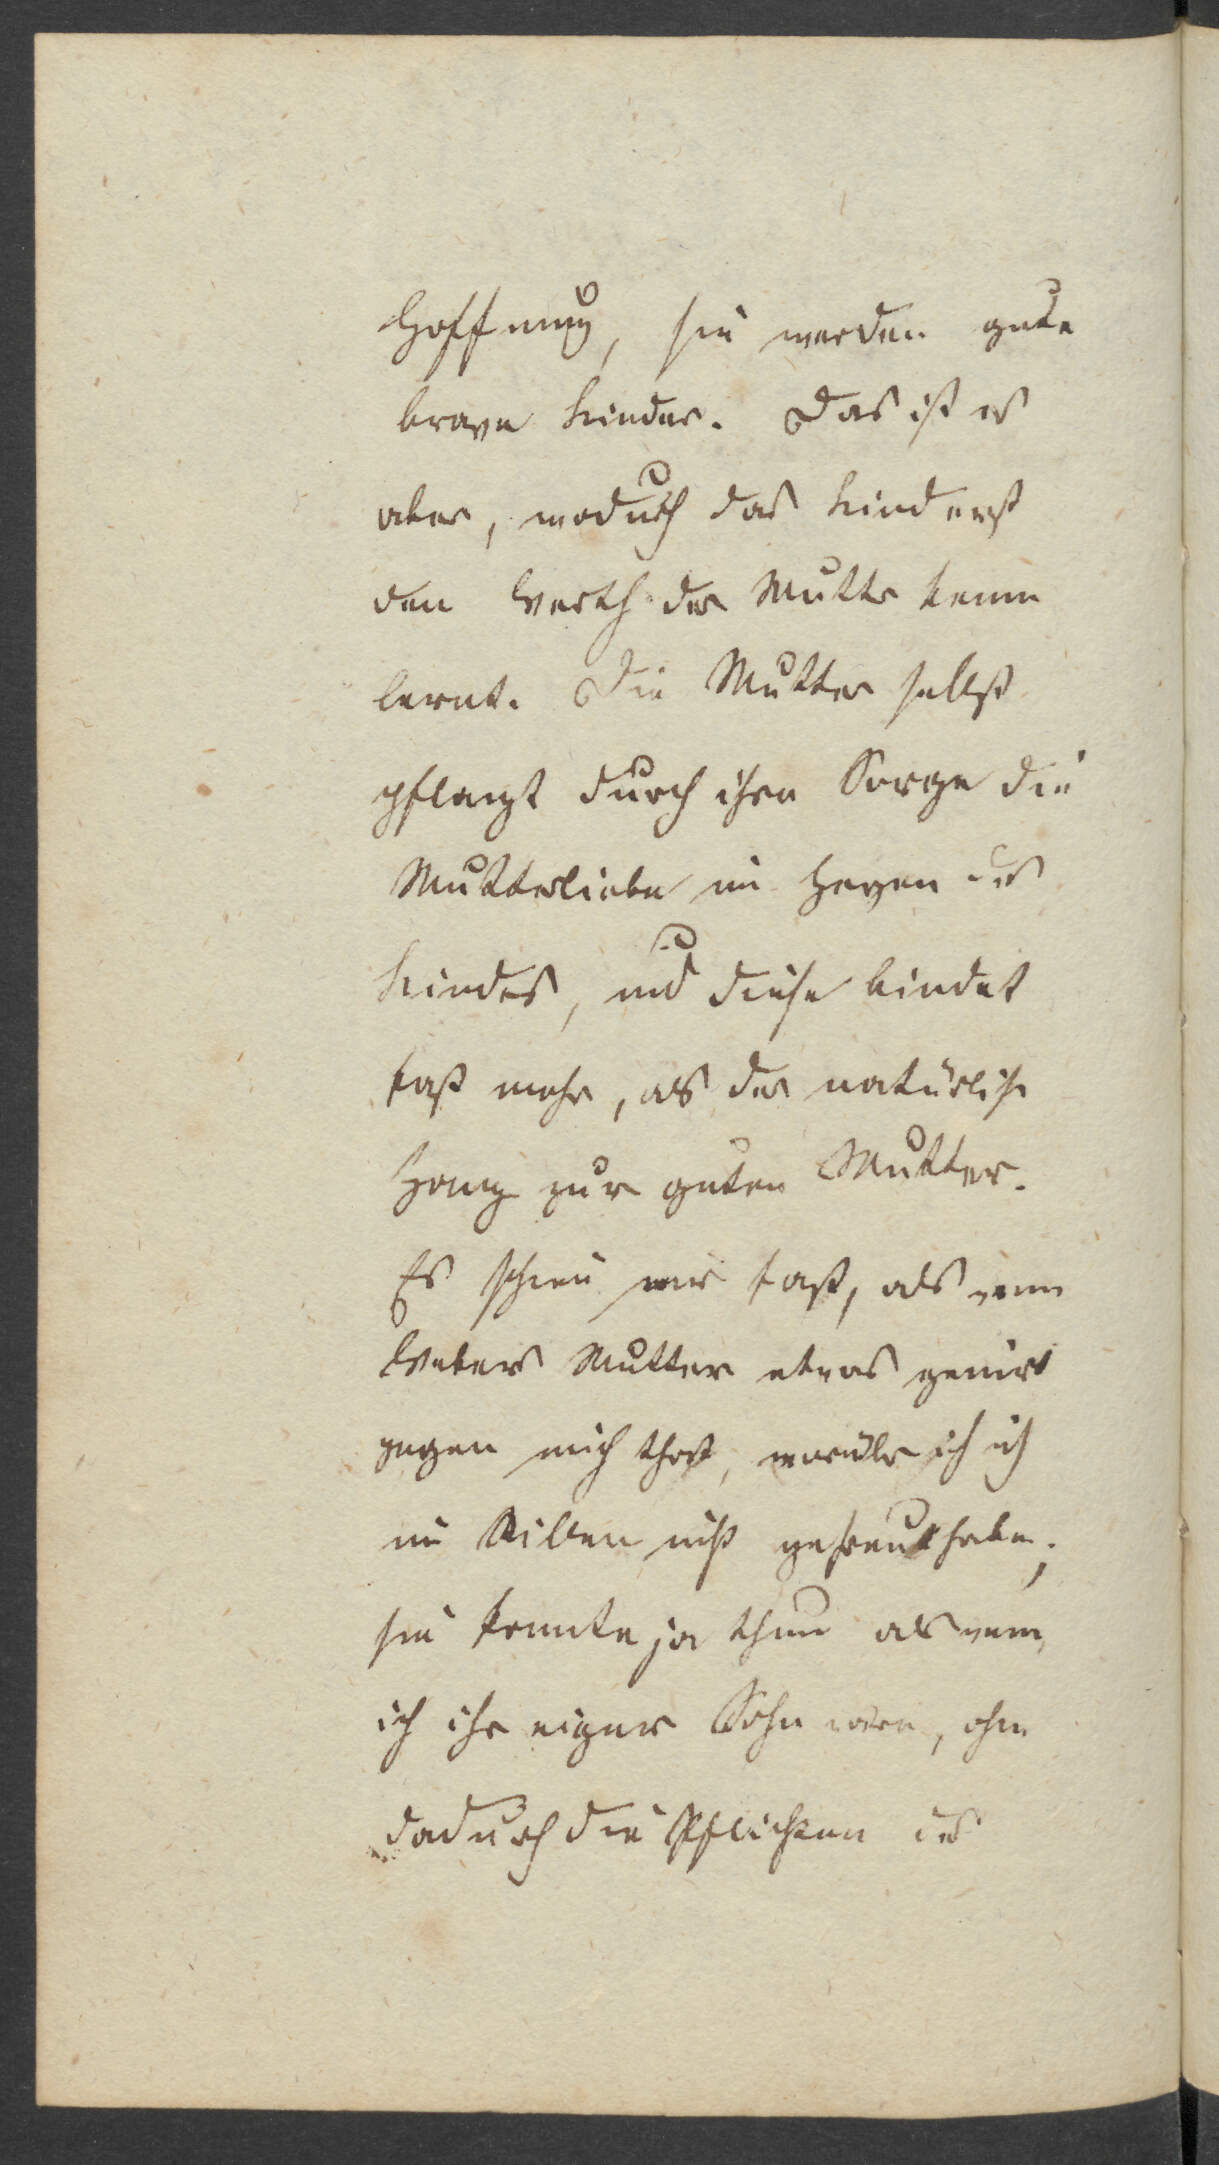 Hoffnung, sie werden gute
brave Kinder. Das ist es
aber, wodurch das Kind erst
den Werth der Mutter kennen
lernt. Die Mutter selbst
pflanzt durch ihre Sorge die
Mutterliebe im Herzen des
Kindes, und diese bindet
fast mehr, als der natürliche
Hang zur guten Mutter.
Es schien mir fast, als wenn
Webers Mutter etwas genirt
gegen mich that, worüber ich
im Stillen nicht gefreut habe;
sie konnte ja thun als wenn
ich ihr eigner Sohn wäre, ohne
dadurch die Pflichten des